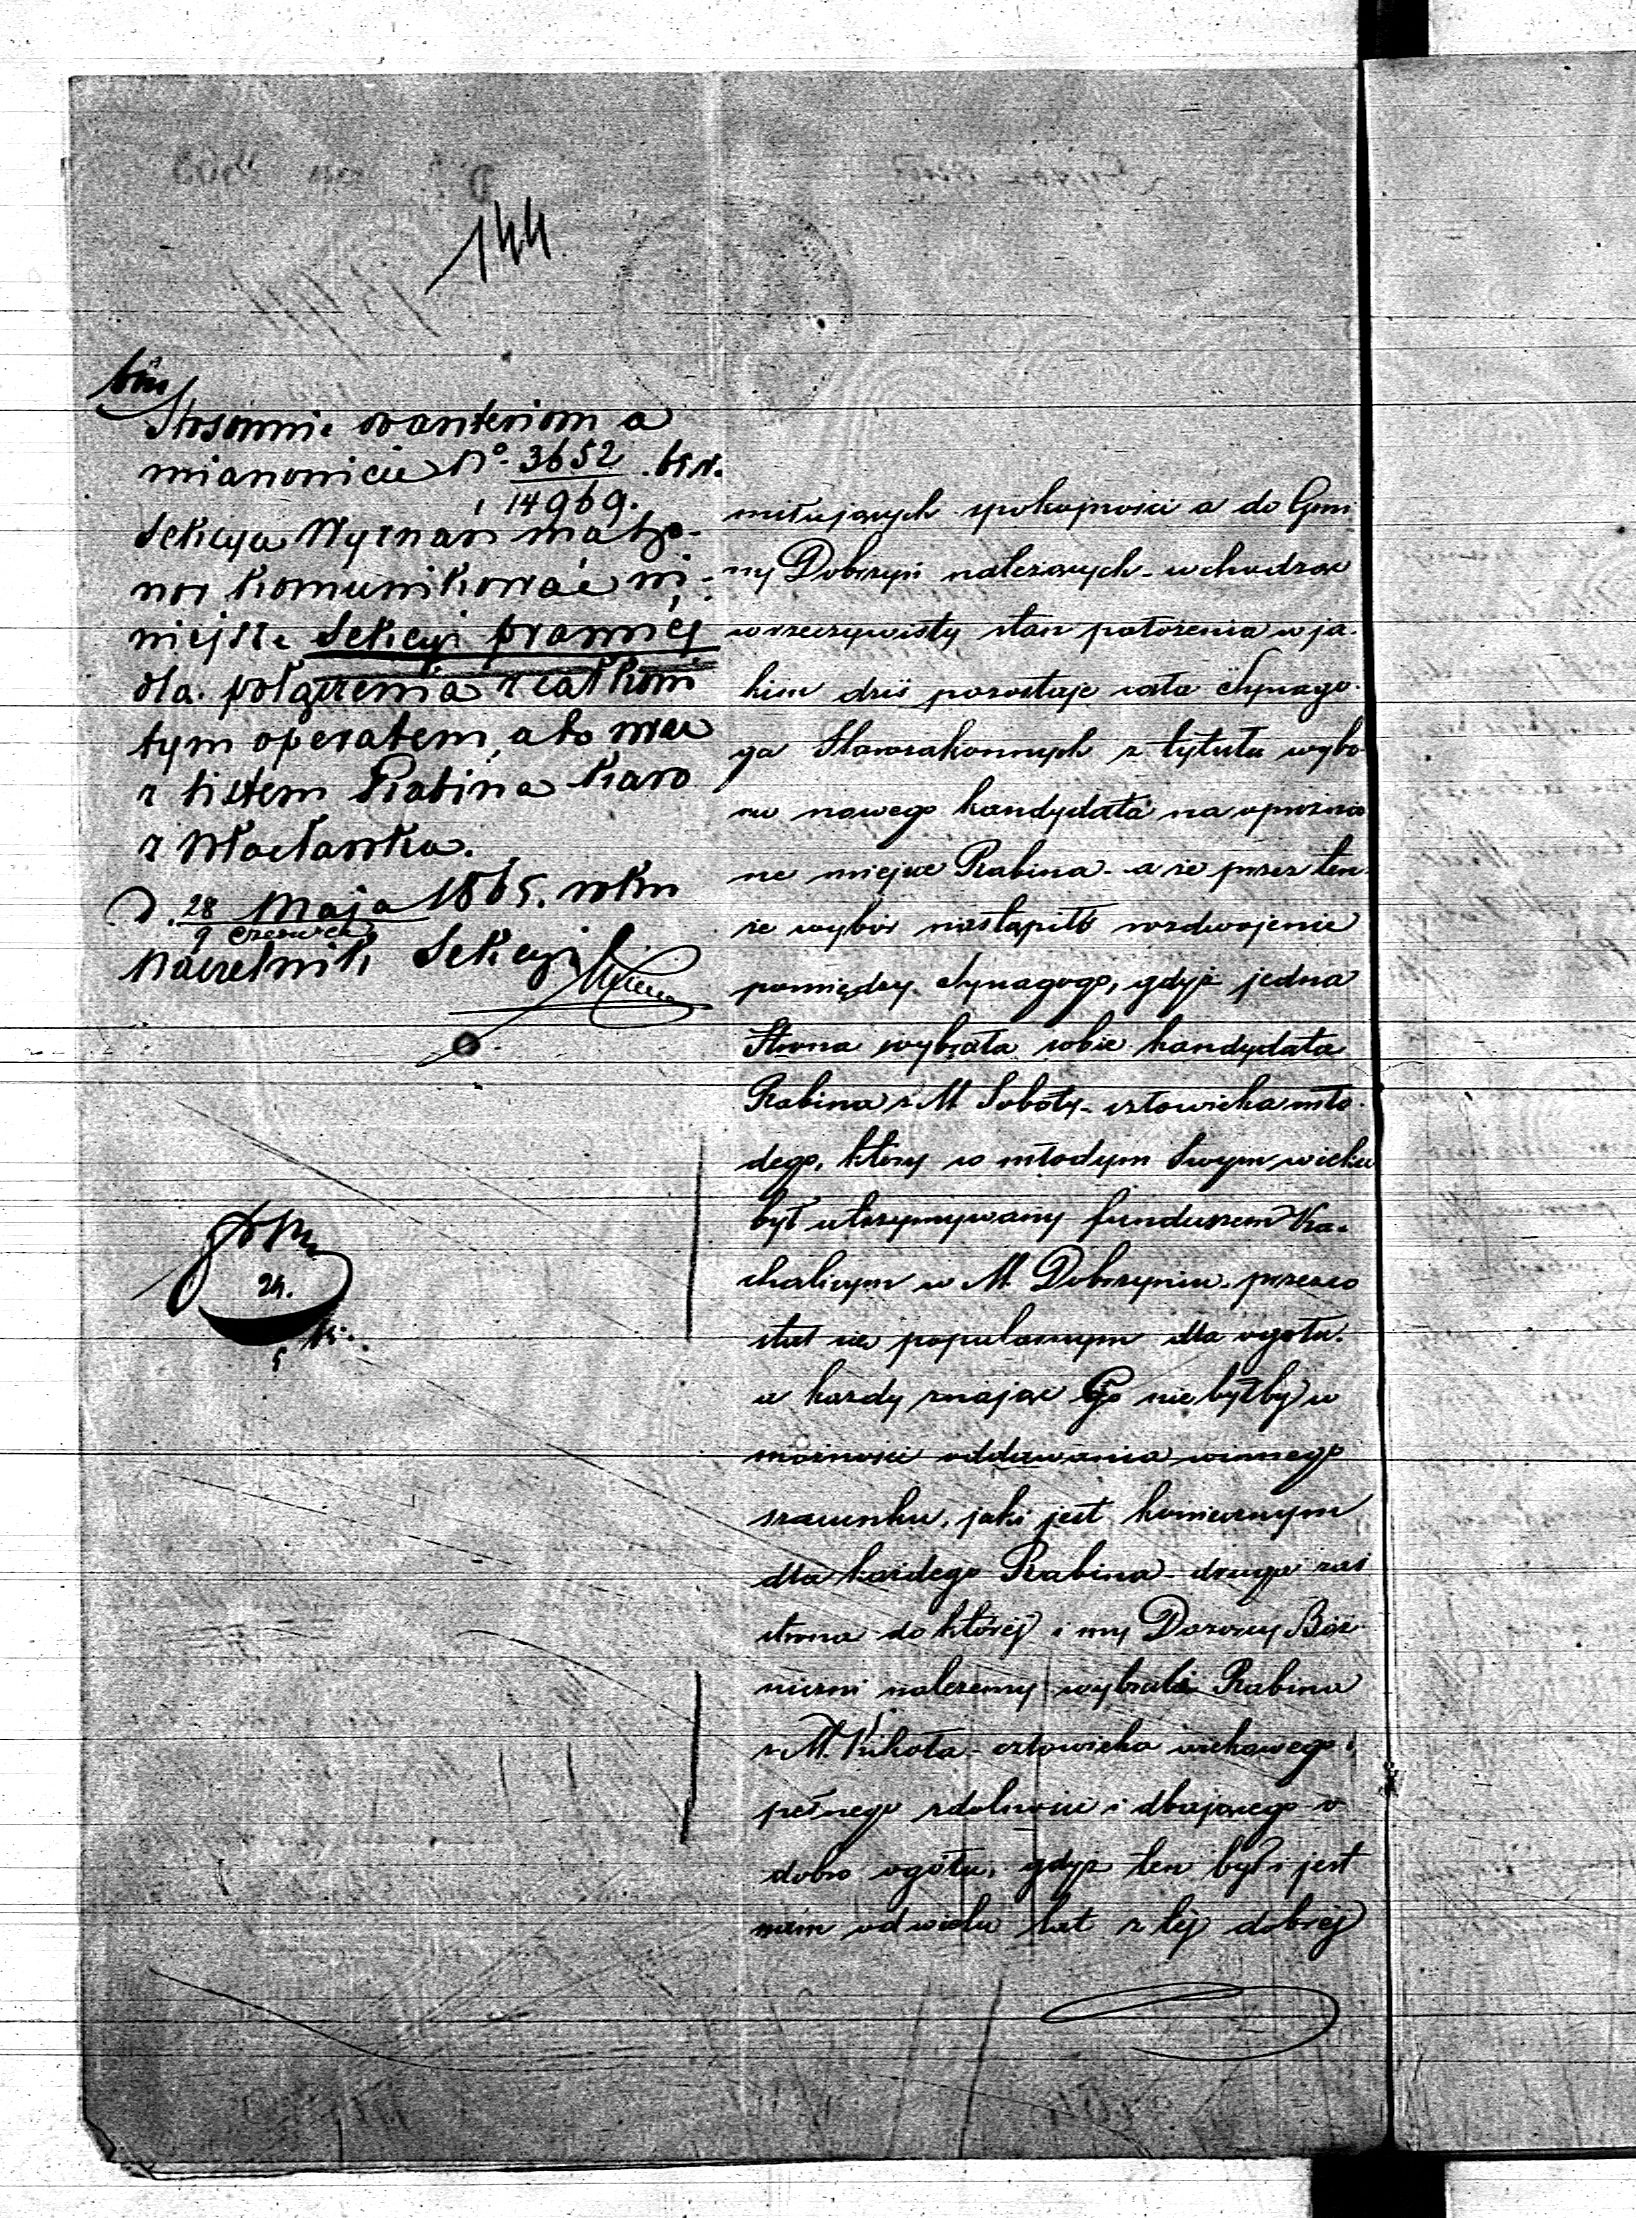 144
Stosownie do anteriom a
mianowicie No 3652 / 14969.
Sekcya Wyznań ma ho-
nor komunikować ni-
niejsze Sekcyi prawnej
dla połączenia z całkowi
tym operatem, a to wraz
z listem Rabina Karo
z Włocławka.
D. 28 Maja / 9 Czerwca 1865. roku
Naczelnik Sekcyi
24.
miłujących spokojności a do Gmi
ny Dobrzyń należących - wchodząc
w rzeczywisty stan położenia w ja-
kim dziś pozostaje cała Synago-
ga Starozakonnych z tytułu wybo
ru nowego kandydata na opróżnio
ne miejsce Rabina - a że przez ten-
że wybór nastąpiło rozdwojenie
pomiędzy Synagogą, gdyż jedna
Strona wybrała sobie kandydata
Rabina z M. Soboty - człowieka mło-
dego, który w młodym swym wieku
był utrzymywany funduszem Ka-
chalicym w M. Dobrzyniu - przez co
stał się popularnym dla ogółu.
a każdy znając Go nie byłby w
możności oddawania winnego
szacunku, jaki jest koniecznym
dla każdego Rabina - druga zaś
strona do której i my Dozorcy Boż-
niczni należemy wybrała Rabina
z M. Kikoła - człowieka wiekowego i
pełnego zdolności i dbającego o
dobro ogółu, gdyż ten był i jest
nam od wielu lat z tej dobrej